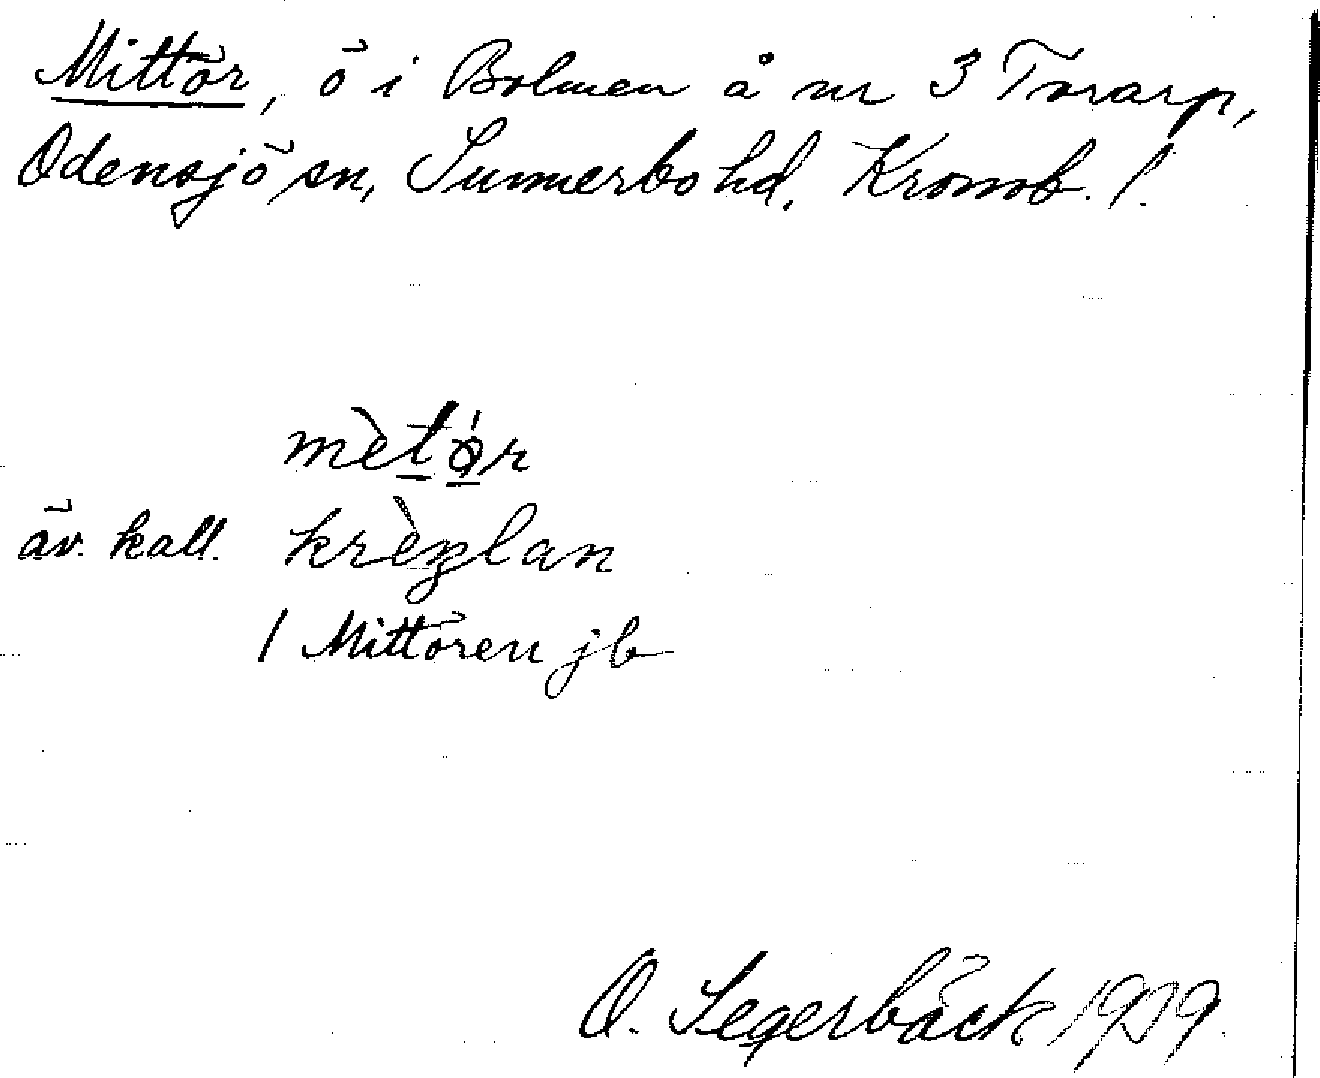 Mittör, ö i Bolmen å nr 3 Torarp,
Odensjö sn, Sunnerbo hd, Kronob. l.
mètǿr
äv. kall. krèplan
/ Mittören jb
O. Segerbäck 1919.